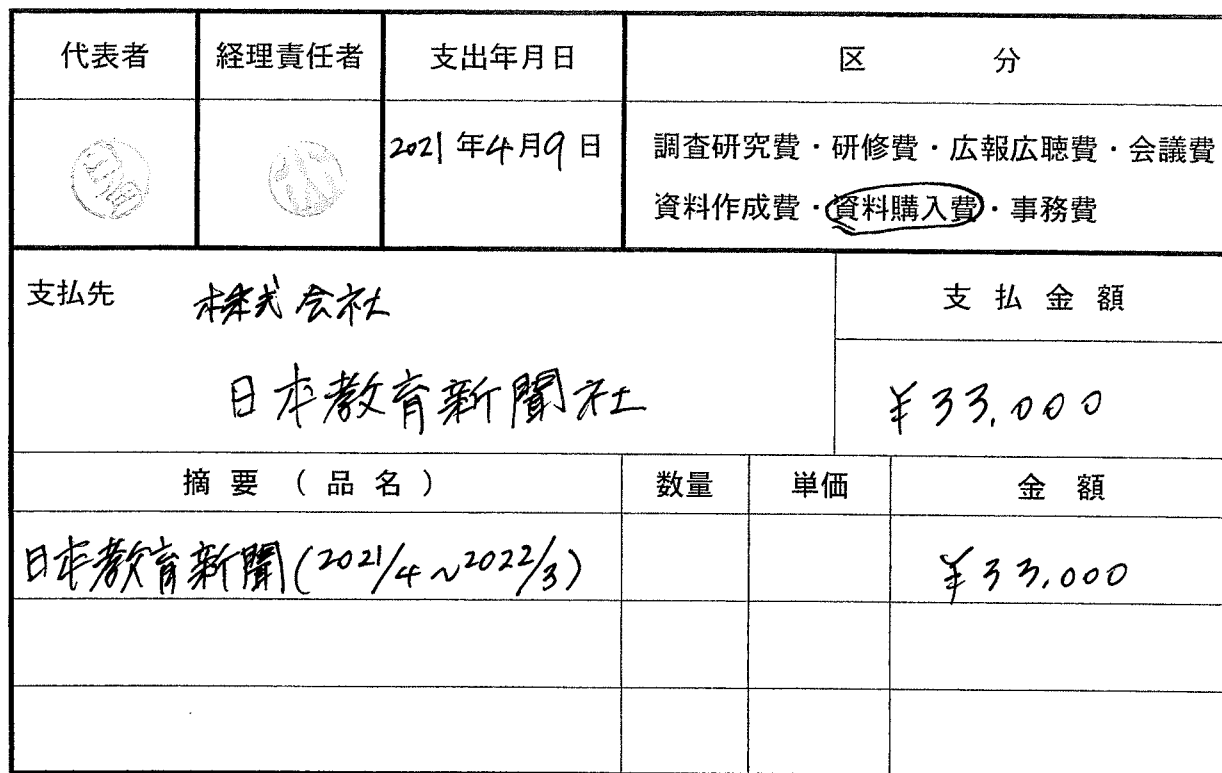 代表者 経理責任者 支出年月日 区 分
2021年4月9日 調査研究費・研修費・広報広聴費・会議費
資料作成費・資料購入費・事務費
支払先 株式会社 支払金額
日本教育新聞社 ¥33,000
摘要（品名） 数量 単価 金額
日本教育新聞(2021/4~2022/3) ¥33,000